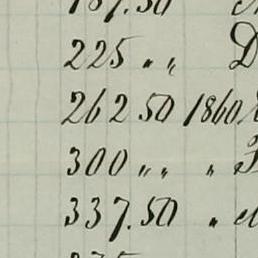 187.50
225 „ „ D
262.50 1860
300 „ „ „ F
337.50 „
375